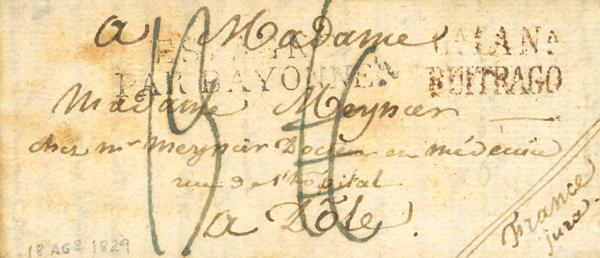 a Madame
PAR BAYONNE
BUITRAGO
Madame Meynier
chez mr Meynier Docteur en médecine
rue de l'hôpital
a Dôle.
France
jura.
18 AGº 1829